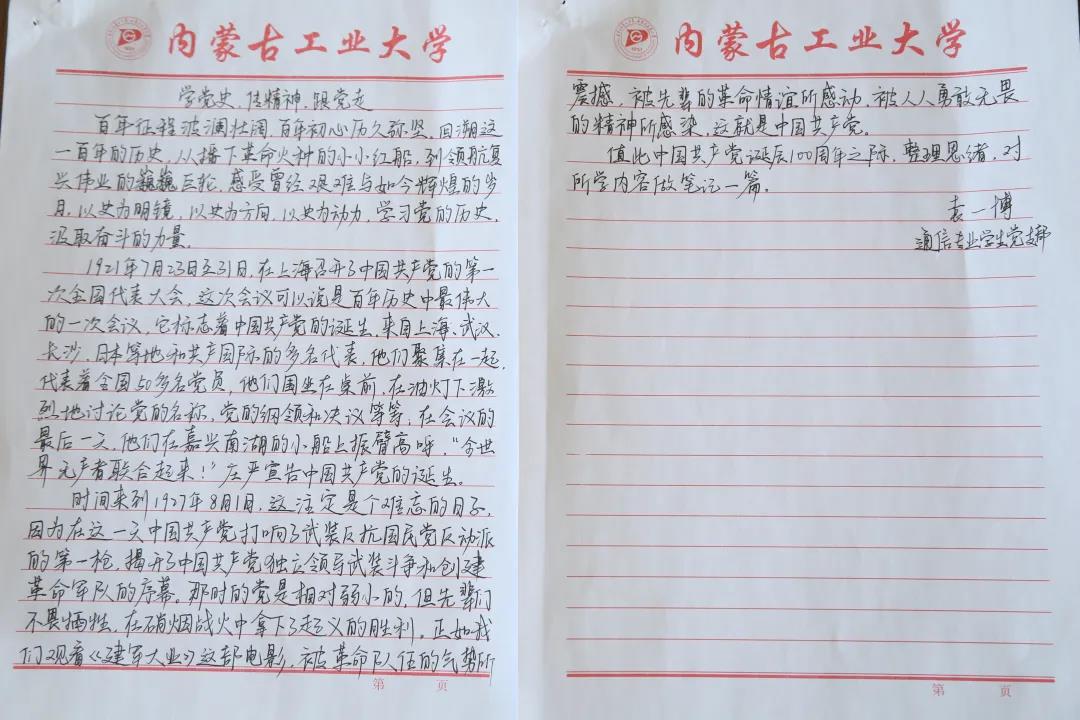 内蒙古工业大学
学党史、传精神、跟党走
百年征程波澜壮阔,百年初心历久弥坚。回溯这
一百年的历史,从播下革命火种的小小红船,到领航复
兴伟业的巍巍巨轮,感受曾经艰难与如今辉煌的岁
月,以史为明镜,以史为方向,以史为动力,学习党的历史,
汲取奋斗的力量。
1921年7月23日至31日,在上海召开了中国共产党的第一
次全国代表大会,这次会议可以说是百年历史中最伟大
的一次会议,它标志着中国共产党的诞生。来自上海、武汉、
长沙、日本等地和共产国际的多名代表,他们聚集在一起,
代表着全国50多名党员,他们围坐在桌前,在油灯下激
烈地讨论党的名称,党的纲领和决议等等,在会议的
最后一天,他们在嘉兴南湖的小船上振臂高呼,“全世
界无产者联合起来!”庄严宣告中国共产党的诞生。
时间来到1927年8月1日,这注定是个难忘的日子,
因为在这一天中国共产党打响了武装反抗国民党反动派
的第一枪,揭开了中国共产党独立领导武装斗争和创建
革命军队的序幕。那时的党是相对弱小的,但先辈们
不畏牺牲,在硝烟战火中拿下了起义的胜利。正如我
们观看《建军大业》这部电影,被革命队伍的气势所
第 页
内蒙古工业大学
震撼,被先辈的革命情谊所感动,被人人勇敢无畏
的精神所感染,这就是中国共产党。
值此中国共产党诞辰100周年之际,整理思绪,对
所学内容做笔记一篇。
袁一博
通信专业学生党支部
第 页